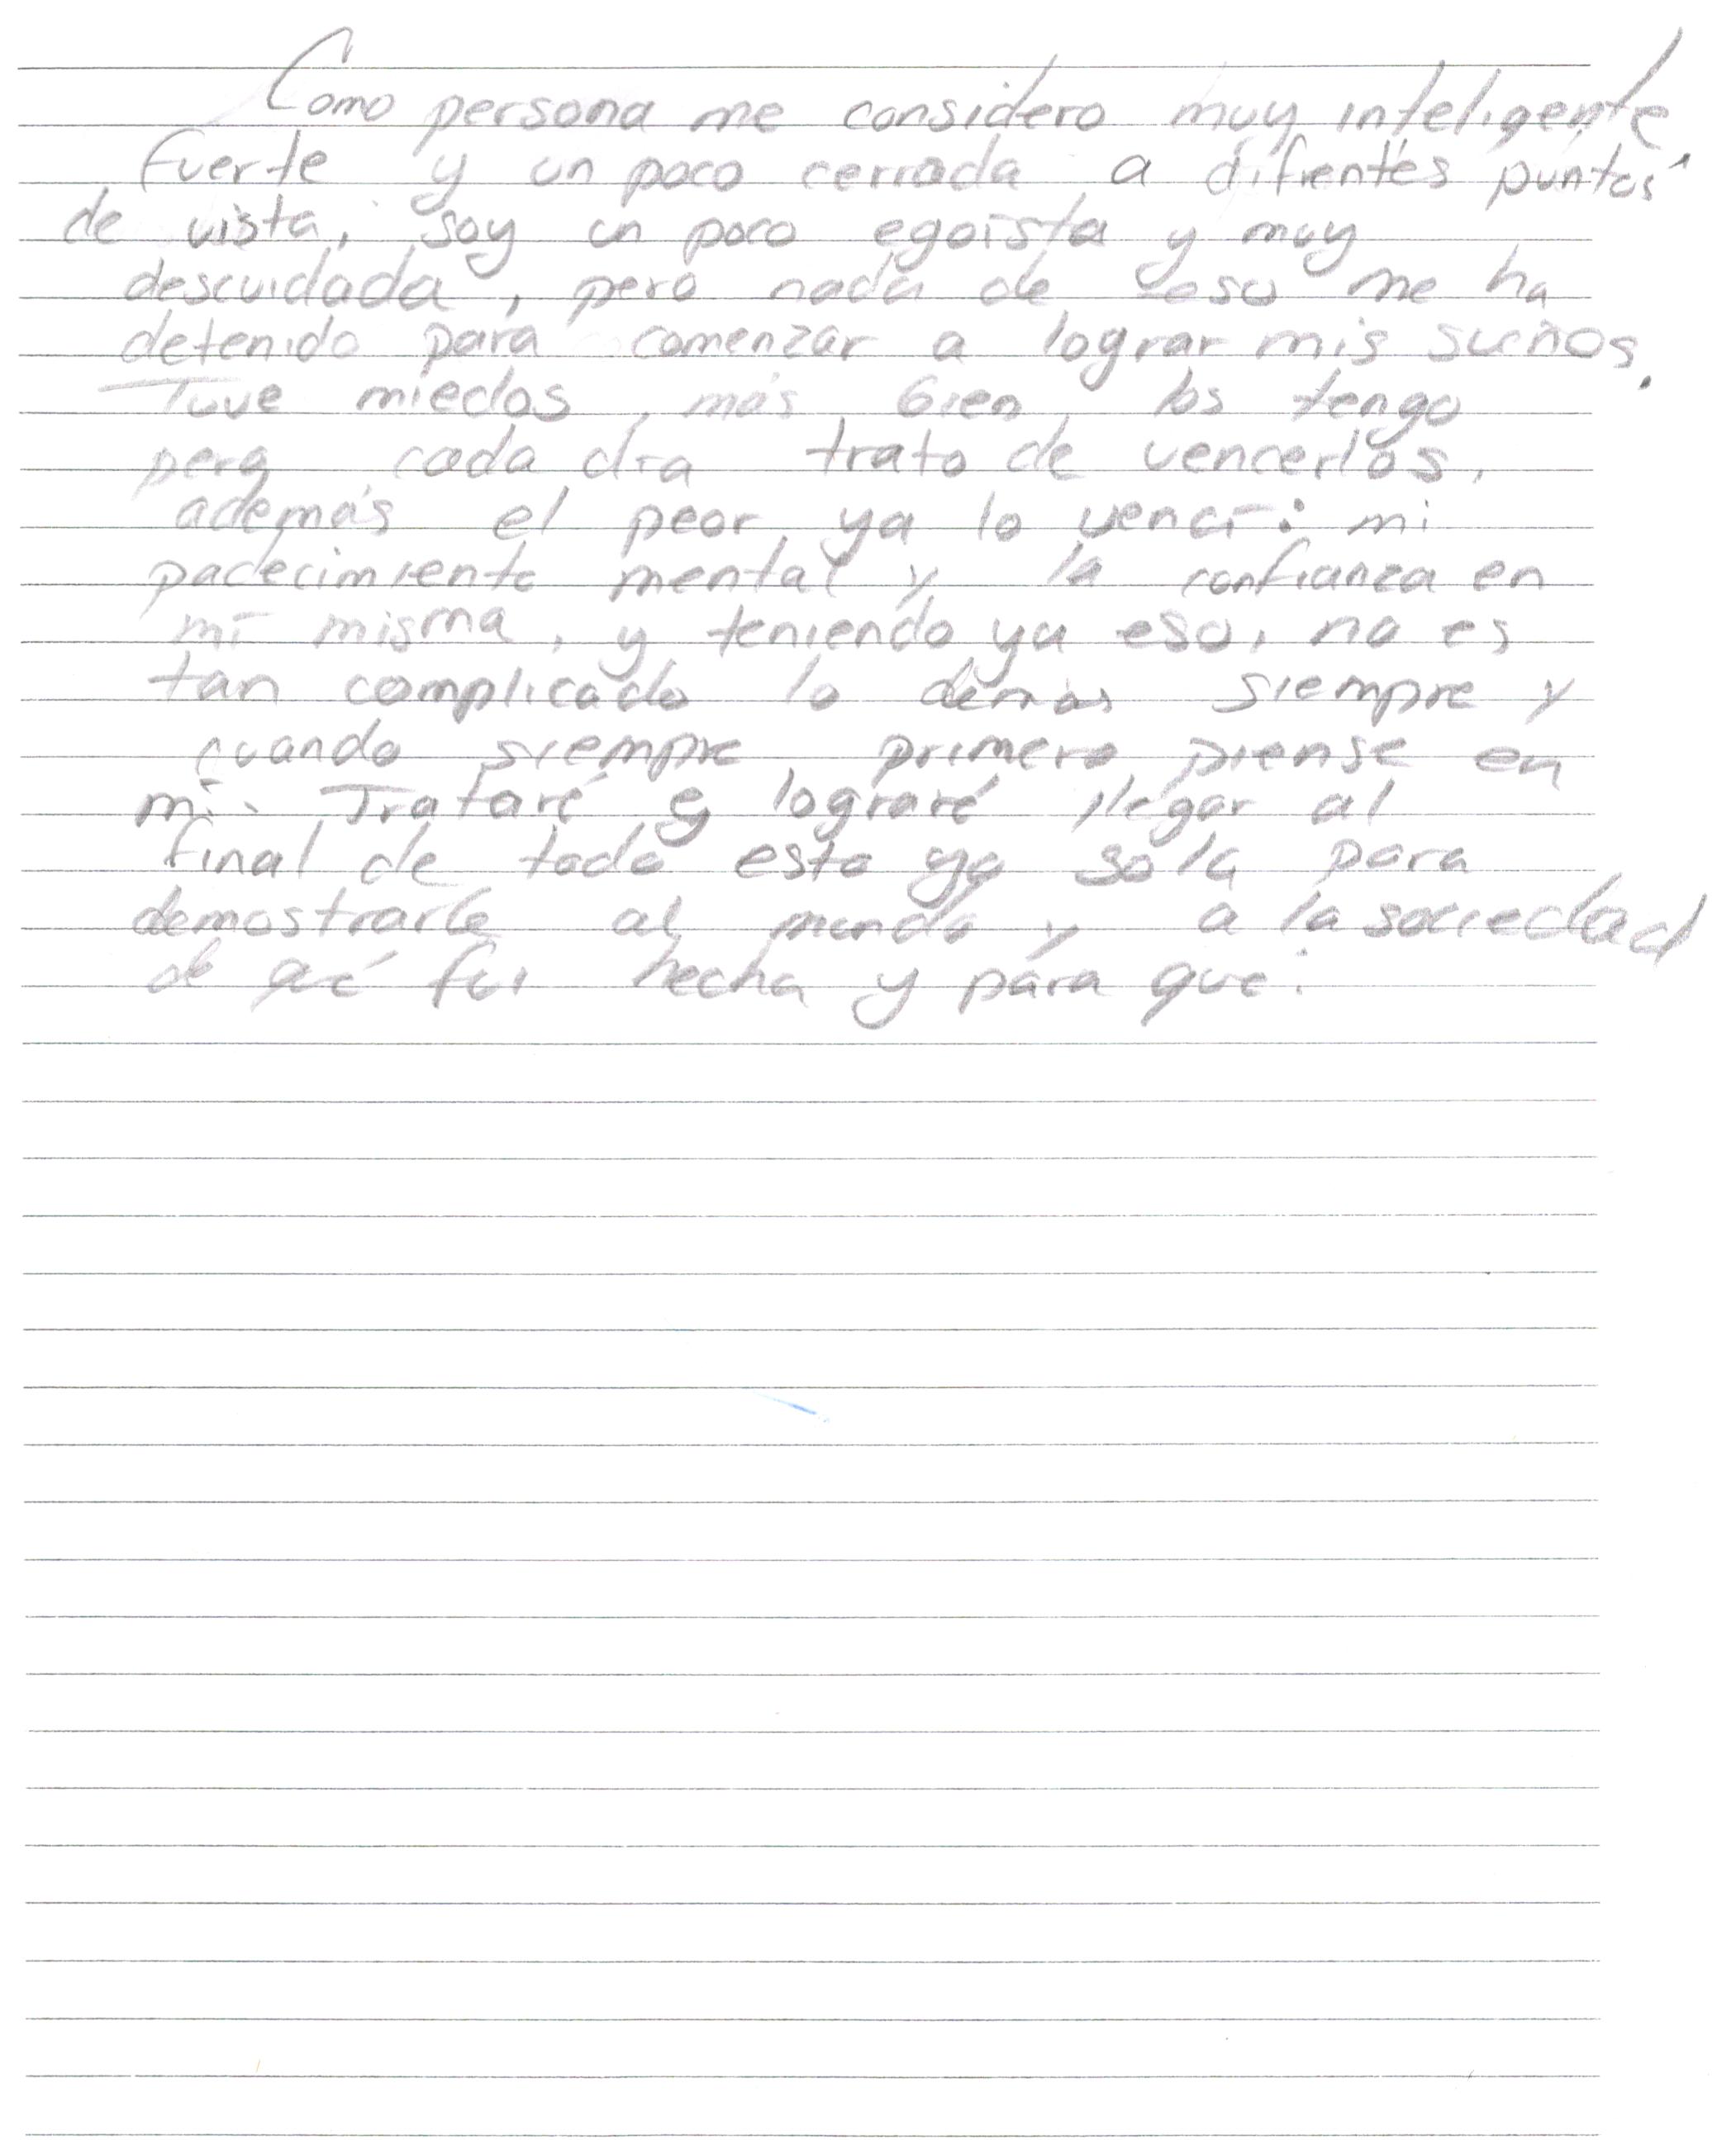 Como persona me considero muy inteligente,
fuerte y un poco cerrada a difrentes puntos
de vista, soy un poco egoísta y muy
descuidada, pero nada de eso me ha
detenido para comenzar a lograr mis sueños.
Tuve miedos, más bien, los tengo
pero cada día trato de vencerlos,
además el peor ya lo vencí: mi
padecimiento mental y la confianza en
mí misma, y teniendo ya eso, no es
tan complicado lo demás siempre y
cuando siempre primero piense en
mí. Trataré y lograré llegar al
final de todo esto yo sola para
demostrarle al mundo y a la sociedad
de qué fui hecha y para qué.